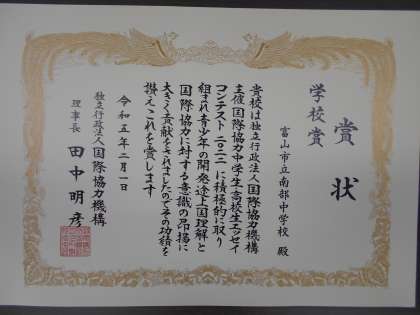 賞状
学校賞
富山市立南部中学校 殿
貴校は独立行政法人国際協力機構
主催国際協力中学生・高校生エッセイ
コンテスト二〇二二に積極的に取り
組まれ青少年の開発途上国理解と
国際協力に対する意識の昂揚に
大きく貢献をされましたのでその功績を
讃えこれを賞します
令和五年二月一日
独立行政法人国際協力機構
理事長 田中明彦